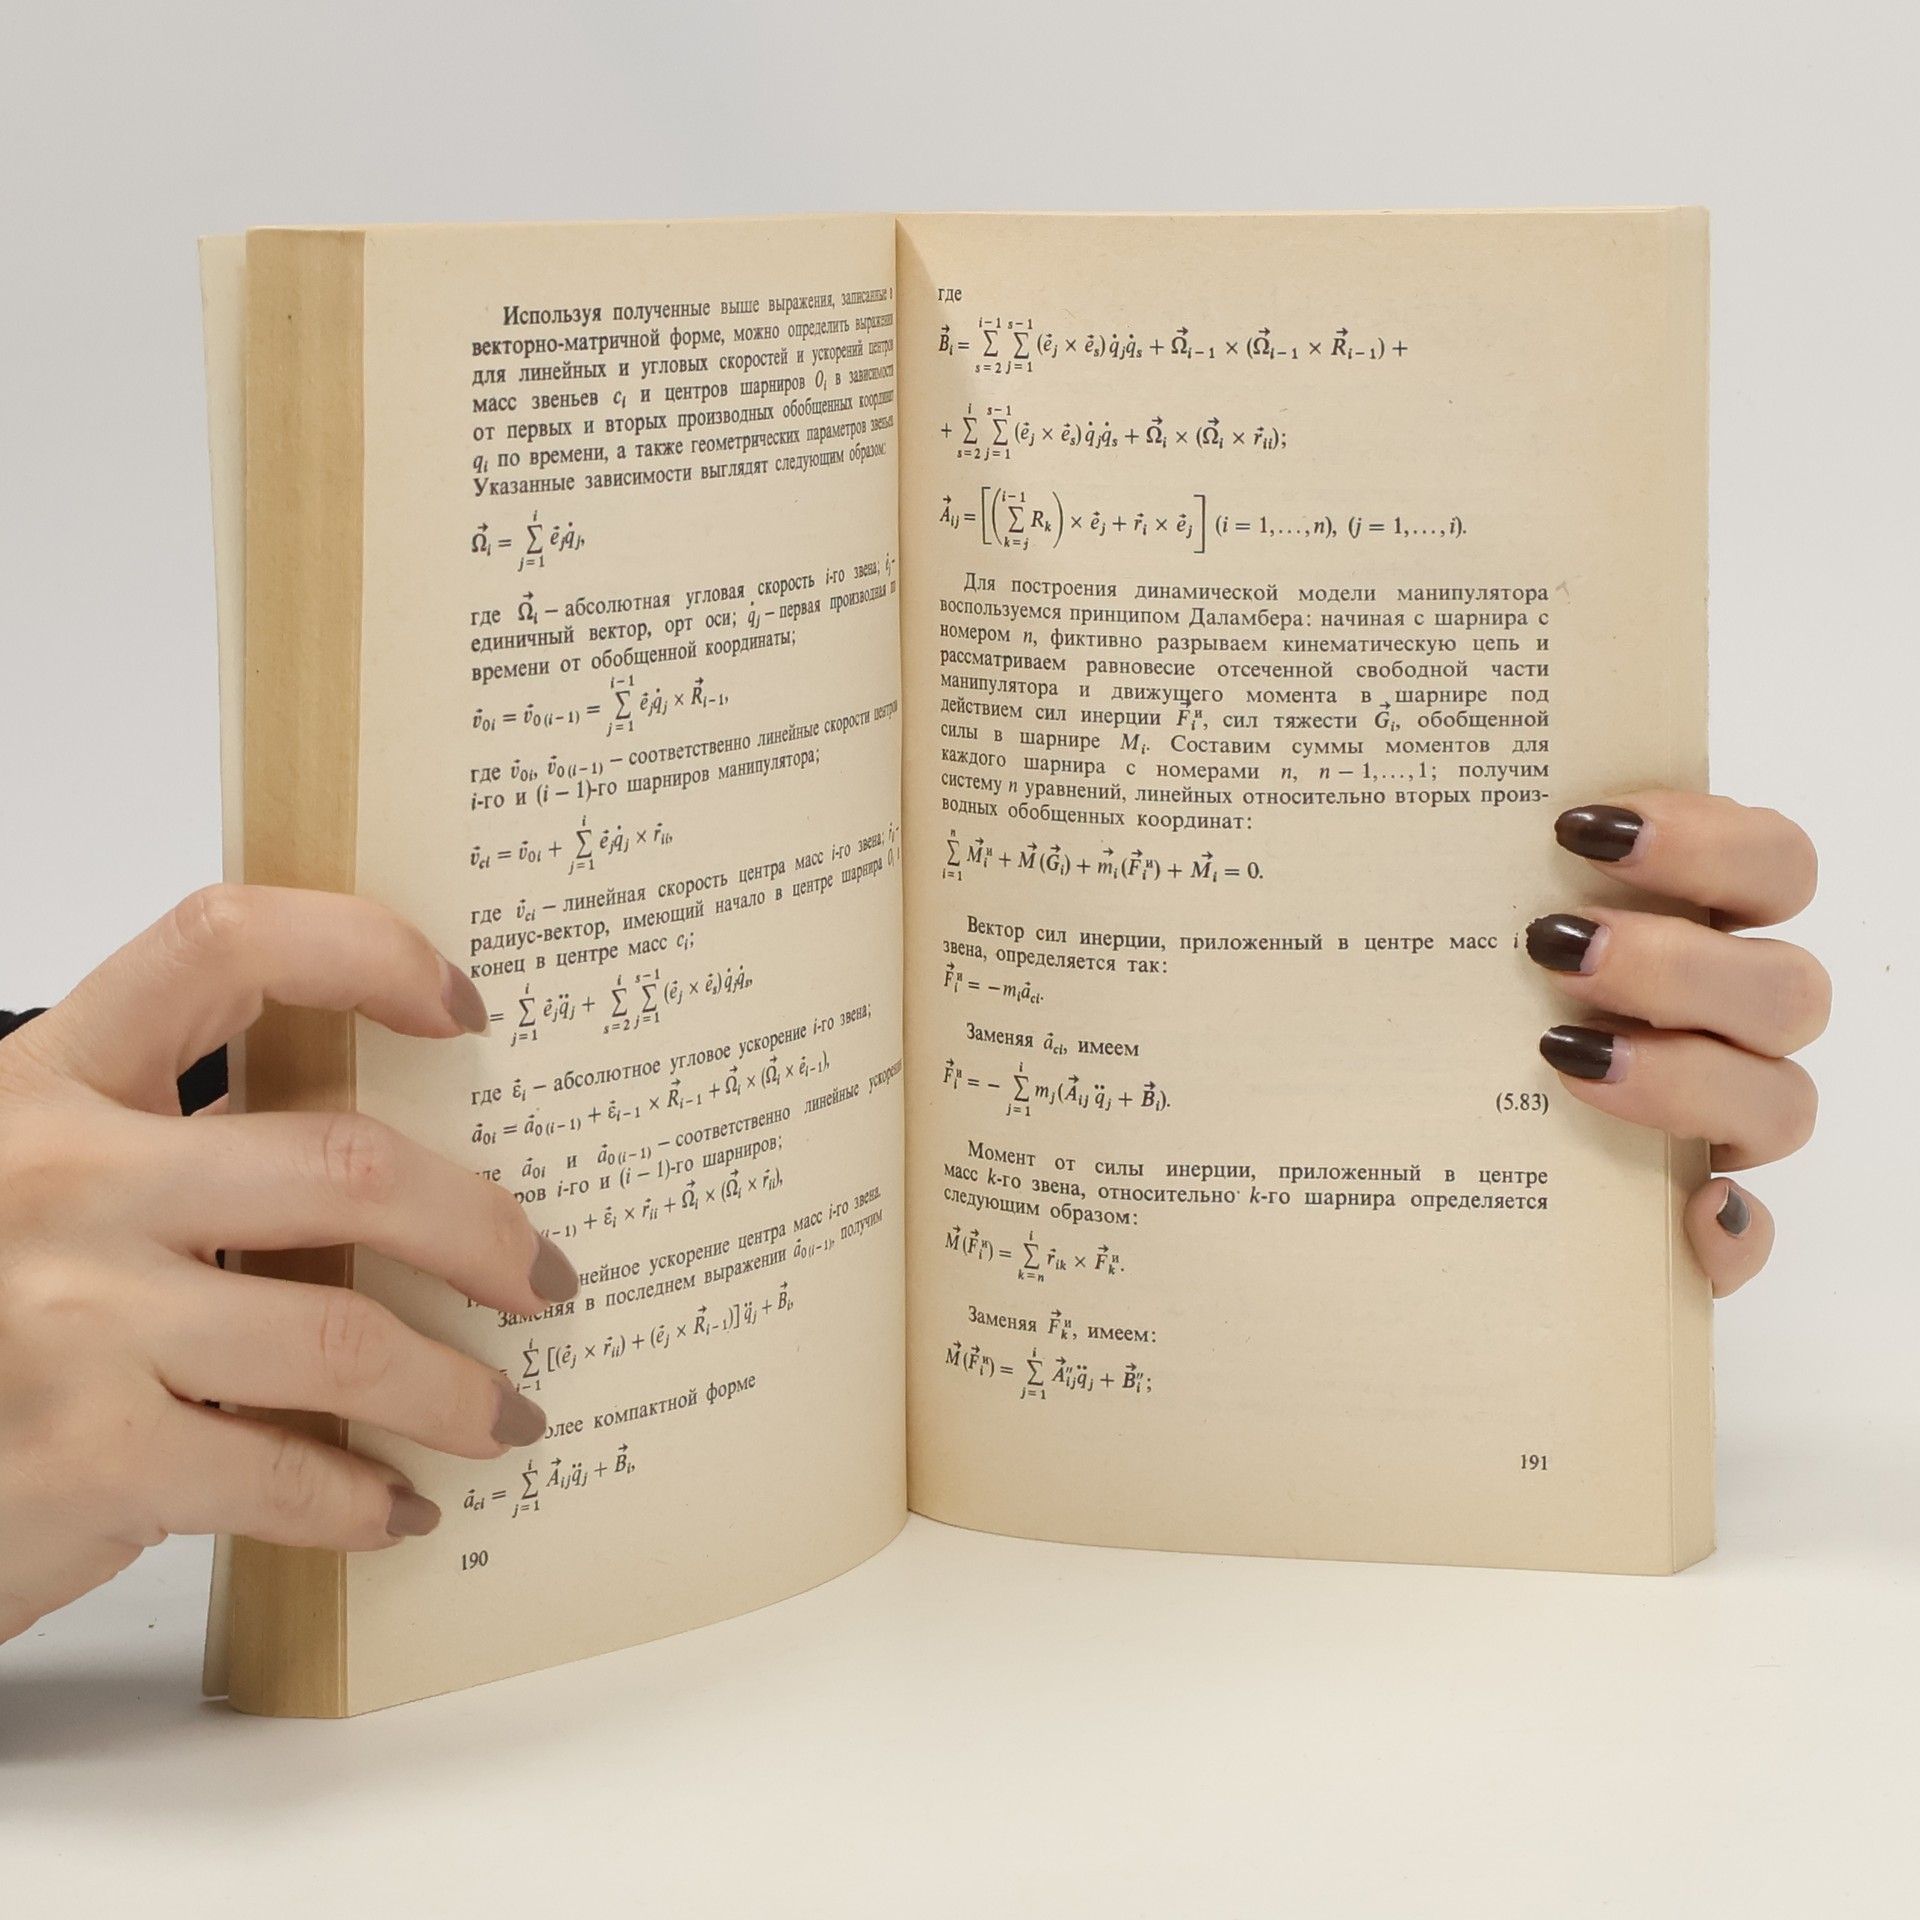 Используя полученные выше выражения, записанные в
векторно-матричной форме, можно определить выражения
для линейных и угловых скоростей и ускорений центров
масс звеньев cᵢ и центров шарниров Oᵢ в зависимости
от первых и вторых производных обобщенных координат
qᵢ по времени, а также геометрических параметров звеньев
Указанные зависимости выглядят следующим образом:
Ω⃗_i = ∑_{j=1}^{i} e⃗_j q̇_j,
где Ω⃗_i – абсолютная угловая скорость i-го звена; e⃗_j –
единичный вектор, орт оси; q̇_j – первая производная по
времени от обобщенной координаты;
v⃗_{0i} = v⃗_{0(i−1)} = ∑_{j=1}^{i−1} e⃗_j q̇_j × R⃗_{i−1},
где v⃗_{0i}, v⃗_{0(i−1)} – соответственно линейные скорости центров
i-го и (i − 1)-го шарниров манипулятора;
v⃗_{ci} = v⃗_{0i} + ∑_{j=1}^{i} e⃗_j q̇_j × r⃗_{ii},
где v⃗_{ci} – линейная скорость центра масс i-го звена;
радиус-вектор, имеющий начало в центре шарнира O_i
конец в центре масс c_i;
= ∑_{j=1}^{i} e⃗_j q̈_j + ∑_{s=2}^{i} ∑_{j=1}^{s−1} (e⃗_j × e⃗_s) q̇_j q̇_s,
где ε⃗_i – абсолютное угловое ускорение i-го звена;
a⃗_{0i} = a⃗_{0(i−1)} + ε⃗_{i−1} × R⃗_{i−1} + Ω⃗_i × (Ω⃗_i × e⃗_{i−1}),
a⃗_{0i} и a⃗_{0(i−1)} – соответственно линейные ускорения
i-го и (i − 1)-го шарниров;
+ ε⃗_i × r⃗_{ii} + Ω⃗_i × (Ω⃗_i × r⃗_{ii}),
ускорение центра масс i-го звена.
Заменяя в последнем выражении a⃗_{0(i−1)}, получим
∑ [(e⃗_j × r⃗_{ii}) + (e⃗_j × R⃗_{i−1})] q̈_j + B⃗_i,
компактной форме
a⃗_{ci} = ∑_{j=1}^{i} A⃗_{ij} q̈_j + B⃗_i,
190
где
B⃗_i = ∑_{s=2}^{i−1} ∑_{j=1}^{s−1} (e⃗_j × e⃗_s) q̇_j q̇_s + Ω⃗_{i−1} × (Ω⃗_{i−1} × R⃗_{i−1}) +
+ ∑_{s=2}^{i} ∑_{j=1}^{s−1} (e⃗_j × e⃗_s) q̇_j q̇_s + Ω⃗_i × (Ω⃗_i × r⃗_{ii});
A⃗_{ij} = [(∑_{k=j}^{i−1} R_k) × e⃗_j + r⃗_i × e⃗_j] (i = 1,...,n), (j = 1,...,i).
Для построения динамической модели манипулятора
воспользуемся принципом Даламбера: начиная с шарнира с
номером n, фиктивно разрываем кинематическую цепь и
рассматриваем равновесие отсеченной свободной части
манипулятора и движущего момента в шарнире под
действием сил инерции F⃗_i^и, сил тяжести G⃗_i, обобщенной
силы в шарнире M_i. Составим суммы моментов для
каждого шарнира с номерами n, n − 1,...,1; получим
систему n уравнений, линейных относительно вторых произ-
водных обобщенных координат:
∑_{i=1}^{n} M⃗_i^и + M⃗(G⃗_i) + m⃗_i(F⃗_i^и) + M⃗_i = 0.
Вектор сил инерции, приложенный в центре масс i
звена, определяется так:
F⃗_i^и = −m_i a⃗_{ci}.
Заменяя a⃗_{ci}, имеем
F⃗_i^и = − ∑_{j=1}^{i} m_j(A⃗_{ij} q̈_j + B⃗_i). (5.83)
Момент от силы инерции, приложенный в центре
масс k-го звена, относительно k-го шарнира определяется
следующим образом:
M⃗(F⃗_i^и) = ∑_{k=n}^{i} r⃗_{ik} × F⃗_k^и.
Заменяя F⃗_k^и, имеем:
M⃗(F⃗_i^и) = ∑_{j=1}^{i} A⃗″_{ij} q̈_j + B⃗″_i;
191